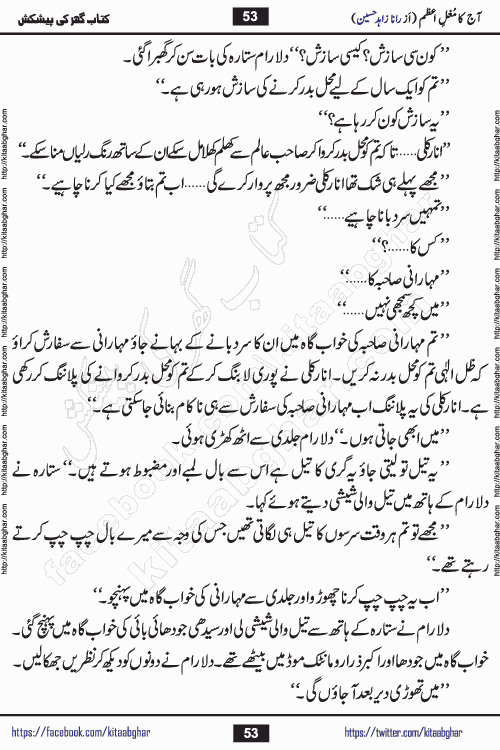 آج کا مُغلِ اعظم (از رانا زاہد حسین)
53
کتاب گھر کی پیشکش
’’کون سی سازش؟ کیسی سازش؟‘‘ دلارام ستارہ کی بات سن کر گھبرا گئی۔
’’تم کو ایک سال کے لیے محل بدر کرنے کی سازش ہو رہی ہے۔‘‘
’’یہ سازش کون کر رہا ہے؟‘‘
’’انارکلی...... تا کہ تم کو محل بدر کروا کر صاحب عالم سے کھلم کھلا مل سکے ان کے ساتھ رنگ رلیاں منا سکے۔‘‘
’’مجھے پہلے ہی شک تھا انارکلی ضرور مجھ پر وار کرے گی...... اب تم بتاؤ مجھے کیا کرنا چاہیے۔‘‘
’’تمہیں سر دبانا چاہیے......‘‘
’’کس کا......؟‘‘
’’مہارانی صاحبہ کا......‘‘
’’میں کچھ سمجھی نہیں......‘‘
’’تم مہارانی صاحبہ کی خواب گاہ میں ان کا سر دبانے کے بہانے جاؤ مہارانی سے سفارش کراؤ
کہ ظل الٰہی تم کو محل بدر نہ کریں۔ انارکلی نے پوری لابنگ کر کے تم کو محل بدر کروانے کی پلاننگ کر رکھی
ہے۔ انارکلی کی یہ پلاننگ اب مہارانی صاحبہ کی سفارش سے ہی ناکام بنائی جا سکتی ہے۔‘‘
’’میں ابھی جاتی ہوں۔‘‘ دلارام جلدی سے اٹھ کھڑی ہوئی۔
’’یہ تیل تو لیتی جاؤ یہ گری کا تیل ہے اس سے بال لمبے اور مضبوط ہوتے ہیں۔‘‘ ستارہ نے
دلارام کے ہاتھ میں تیل والی شیشی دیتے ہوئے کہا۔
’’مجھے تو تم ہر وقت سرسوں کا تیل ہی لگاتی تھیں جس کی وجہ سے میرے بال چپ چپ کرتے
رہتے تھے۔‘‘
’’اب یہ چپ چپ کرنا چھوڑو اور جلدی سے مہارانی کی خواب گاہ میں پہنچو۔‘‘
دلارام نے ستارہ کے ہاتھ سے تیل والی شیشی لی اور سیدھی جودھا بائی کی خواب گاہ میں پہنچ گئی۔
خواب گاہ میں جودھا اور اکبر ذرا رومانٹک موڈ میں بیٹھے تھے۔ دلارام نے دونوں کو دیکھ کر نظریں جھکا لیں۔
’’میں تھوڑی دیر بعد آ جاؤں گی۔‘‘
https://facebook.com/kitaabghar
53
https://twitter.com/kitaabghar
http://kitaabghar.com
http://kitaabghar.com
http://kitaabghar.com
http://kitaabghar.com
http://kitaabghar.com
http://kitaabghar.com
http://kitaabghar.com
http://kitaabghar.com
http://kitaabghar.com
http://kitaabghar.com
http://kitaabghar.com
http://kitaabghar.com
کتاب گھر کی پیشکش
kitaabghar.com
facebook.com/kitaabghar